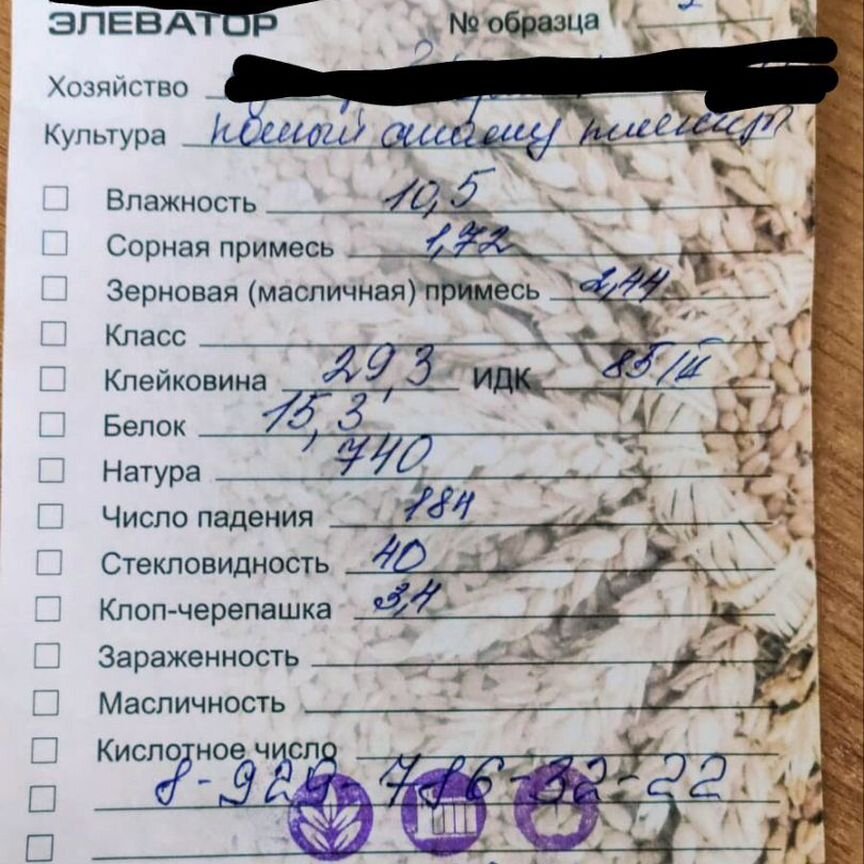 ЭЛЕВАТОР № образца
Хозяйство
Культура полный анализ пшеницы
Влажность 10,5
Сорная примесь 1,72
Зерновая (масличная) примесь 2,44
Класс
Клейковина 29,3 ИДК 85/II
Белок 15,3
Натура 740
Число падения 184
Стекловидность 40
Клоп-черепашка 3,4
Зараженность
Масличность
Кислотное число
8-929-786-32-22